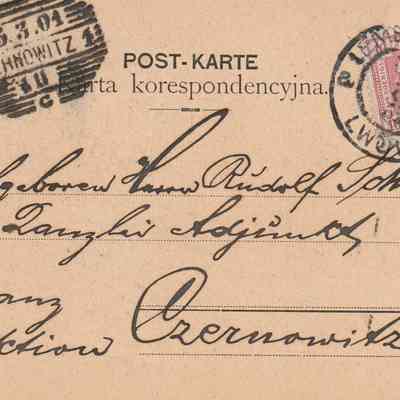 5.3.01
RNOWITZ 1
POST-KARTE
Karta korespondencyjna.
LEMB
LWÓW
geboren Herrn Rudolf Sch
Kanzlei Adjunkt
anz
ktion Czernowitz